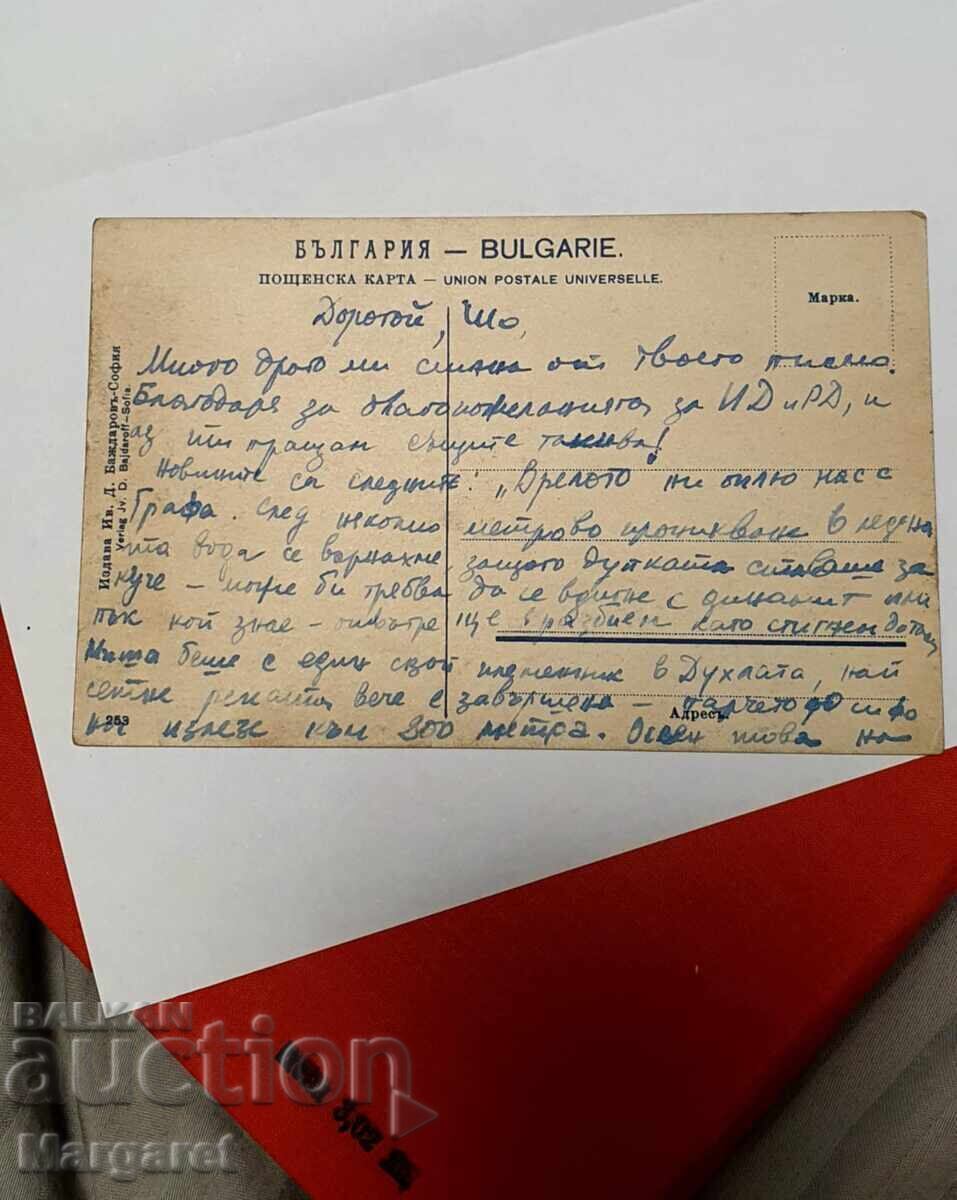 БЪЛГАРИЯ — BULGARIE.
ПОЩЕНСКА КАРТА — UNION POSTALE UNIVERSELLE.
Марка.
Издава Ив. Д. Баждаровъ-София
Verlag Jv. D. Bajdaroff-Sofia.
Дорогой, Шо,
Много драго ми стана от твоето писмо.
Благодаря за благопожеланията за ИД и РД, и
аз ти пращам същите такива!
Новините са следните: „Врелото" ни
Графа. След неколко метрово проникване в ледена
та вода се върнахме, защото дупката ставаше за
куче — може би трябва да се вдигне с динамит или
пък кой знае — отвътре ще е разбиен като стигнем дотам
Миша беше с един свой в Духлата, най
сетне вече е завършена —
излезе към 200 метра. Освен това на
Адресъ.
253
BALKAN
auction
Margaret